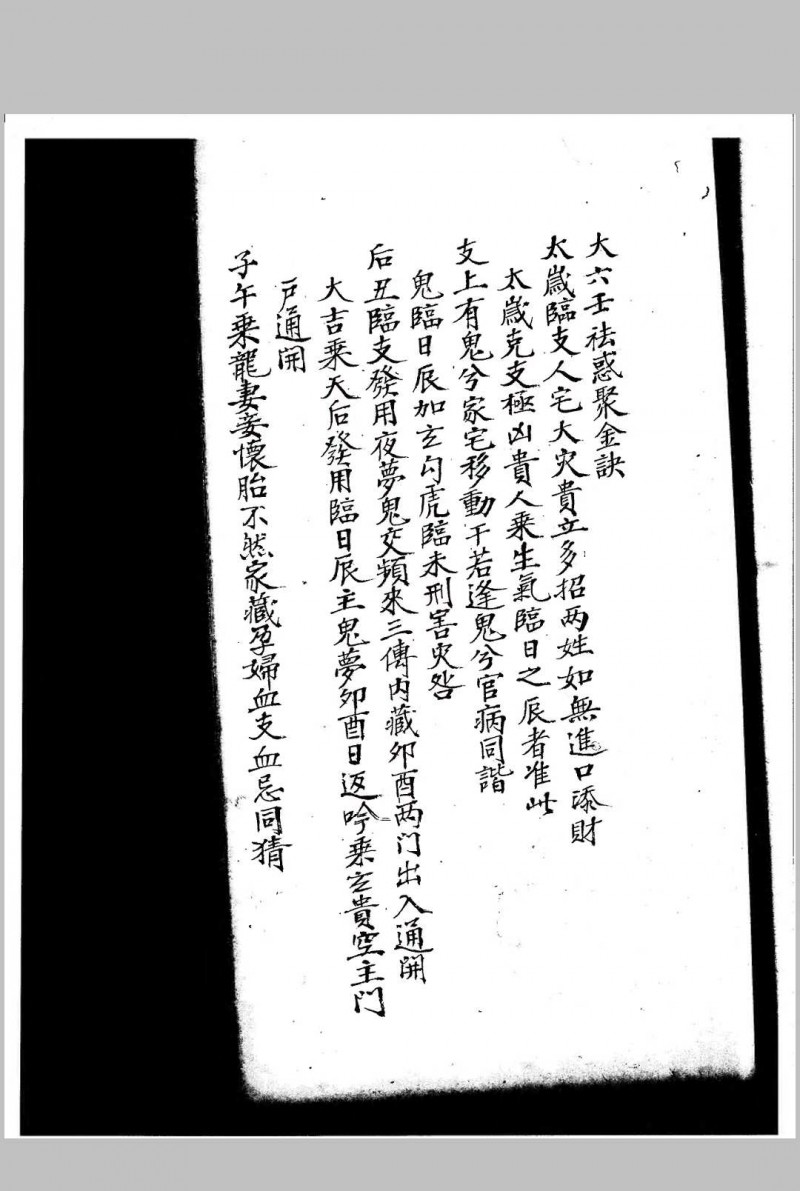 大六壬祛惑聚金訣
太歲臨支人宅大灾貴立多招两姓如無進口添財
太歲克支極凶貴人乘生氣臨日之辰者准此
支上有鬼兮家宅移動干若逢鬼兮官病同諧
鬼臨日辰加玄勾虎臨未刑害灾咎
后丑臨支發用夜夢鬼交頻來三傳内藏卯酉两门出入通開
大吉乘天后發用臨日辰主鬼夢卯酉日返吟乘玄貴空主門
戶通開
子午乘龍妻妾懷胎不然家藏孕婦血支血忌同猜